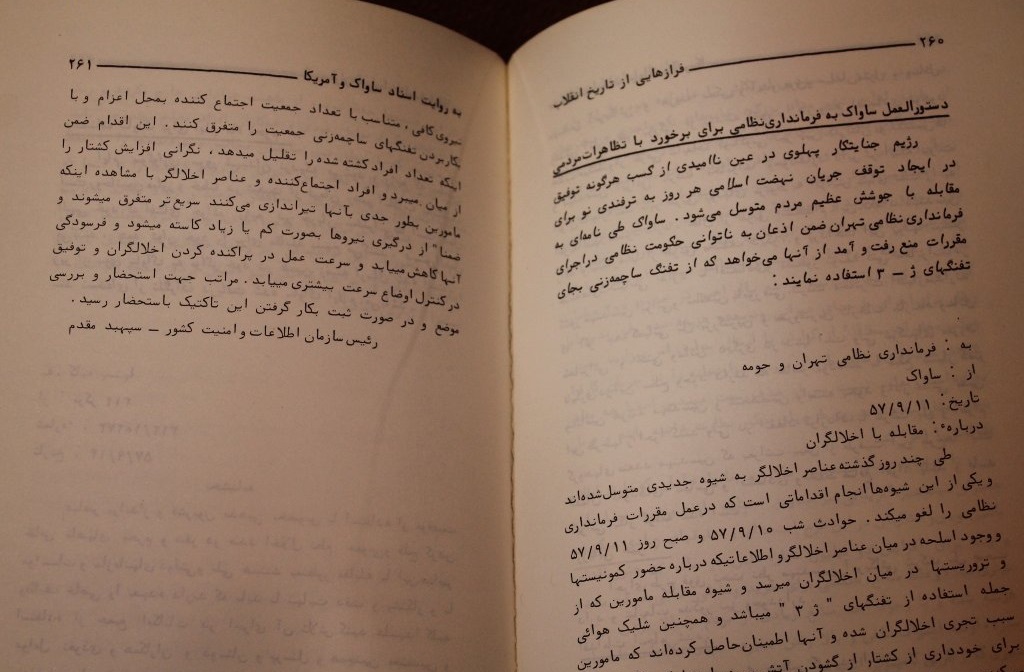 ۲۶۰
فرازهایی از تاریخ انقلاب
دستورالعمل ساواک به فرمانداری‌نظامی برای برخورد با تظاهرات‌مردمی
رژیم جنایتکار پهلوی در عین ناامیدی از کسب هرگونه توفیق
در ایجاد توقف جریان نهضت اسلامی هر روز به ترفندی نو برای
مقابله با جوشش عظیم مردم متوسل می‌شود . ساواک طی نامه‌ای به
فرمانداری‌نظامی تهران ضمن اذعان به ناتوانی حکومت نظامی دراجرای
مقررات منع رفت و آمد از آنها می‌خواهد که از تفنگ ساچمه‌زنی بجای
تفنگهای ژ ـ ۳ استفاده نمایند :
به : فرمانداری نظامی تهران و حومه
از : ساواک
تاریخ: ۵۷/۹/۱۱
درباره‌ٔ: مقابله با اخلالگران
طی چند روز گذشته‌عناصر اخلالگر به شیوه جدیدی متوسل‌شده‌اند
و یکی از این شیوه‌ها انجام اقداماتی است که درعمل مقررات فرمانداری
نظامی را لغو میکند . حوادث شب ۵۷/۹/۱۰ و صبح روز ۵۷/۹/۱۱
و وجود اسلحه در میان عناصر اخلالگرو اطلاعاتیکه درباره حضور کمونیستها
و تروریستها در میان اخلالگران میرسد و شیوه مقابله مامورین که از
جمله استفاده از تفنگهای " ژ ۳ " میباشد و همچنین شلیک هوائی
سبب تجری اخلالگران شده و آنها اطمینان‌حاصل کرده‌اند که مامورین
برای خودداری از کشتار از گشودن آتش
۲۶۱
به روایت اسناد ساواک و آمریکا
نیروی‌کافی ، متناسب با تعداد جمعیت اجتماع کننده بمحل اعزام و با
بکاربردن تفنگهای ساچمه‌زنی جمعیت را متفرق کنند . این اقدام ضمن
اینکه تعداد افراد کشته شده را تقلیل میدهد ، نگرانی افزایش کشتار را
از میان میبرد و افراد اجتماع‌کننده و عناصر اخلالگر با مشاهده اینکه
مامورین بطور جدی بآنها تیراندازی می‌کنند سریع‌تر متفرق میشوند و
ضمنا" از درگیری نیروها بصورت کم یا زیاد کاسته میشود و فرسودگی
آنها کاهش‌مییابد و سرعت عمل در پراکنده کردن اخلالگران و توفیق
درکنترل اوضاع سرعت بیشتری مییابد . مراتب جهت استحضار و بررسی
موضع و در صورت ثبت بکار گرفتن این تاکتیک باستحضار رسید .
رئیس‌سازمان اطلاعات و امنیت کشور ـ سپهبد مقدم